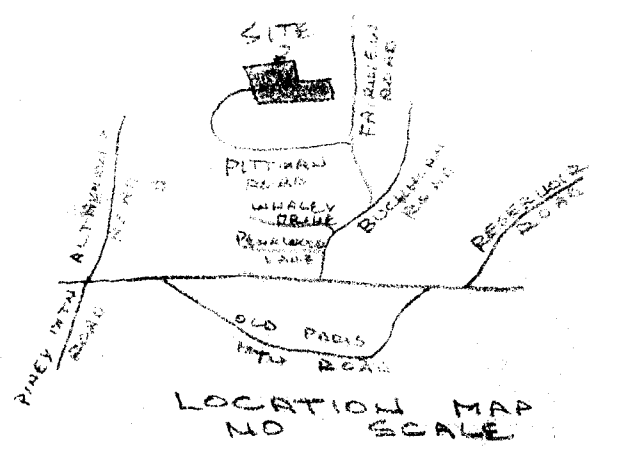 SITE
FAIRVIEW
ROAD
PITTMAN
ROAD
WHALEY
DRIVE
BUCKHORN
ROAD
RESERVOIR
ROAD
LANE
ROAD
PINEY MTN
ROAD
OLD PARIS
MTN ROAD
LOCATION MAP
NO SCALE